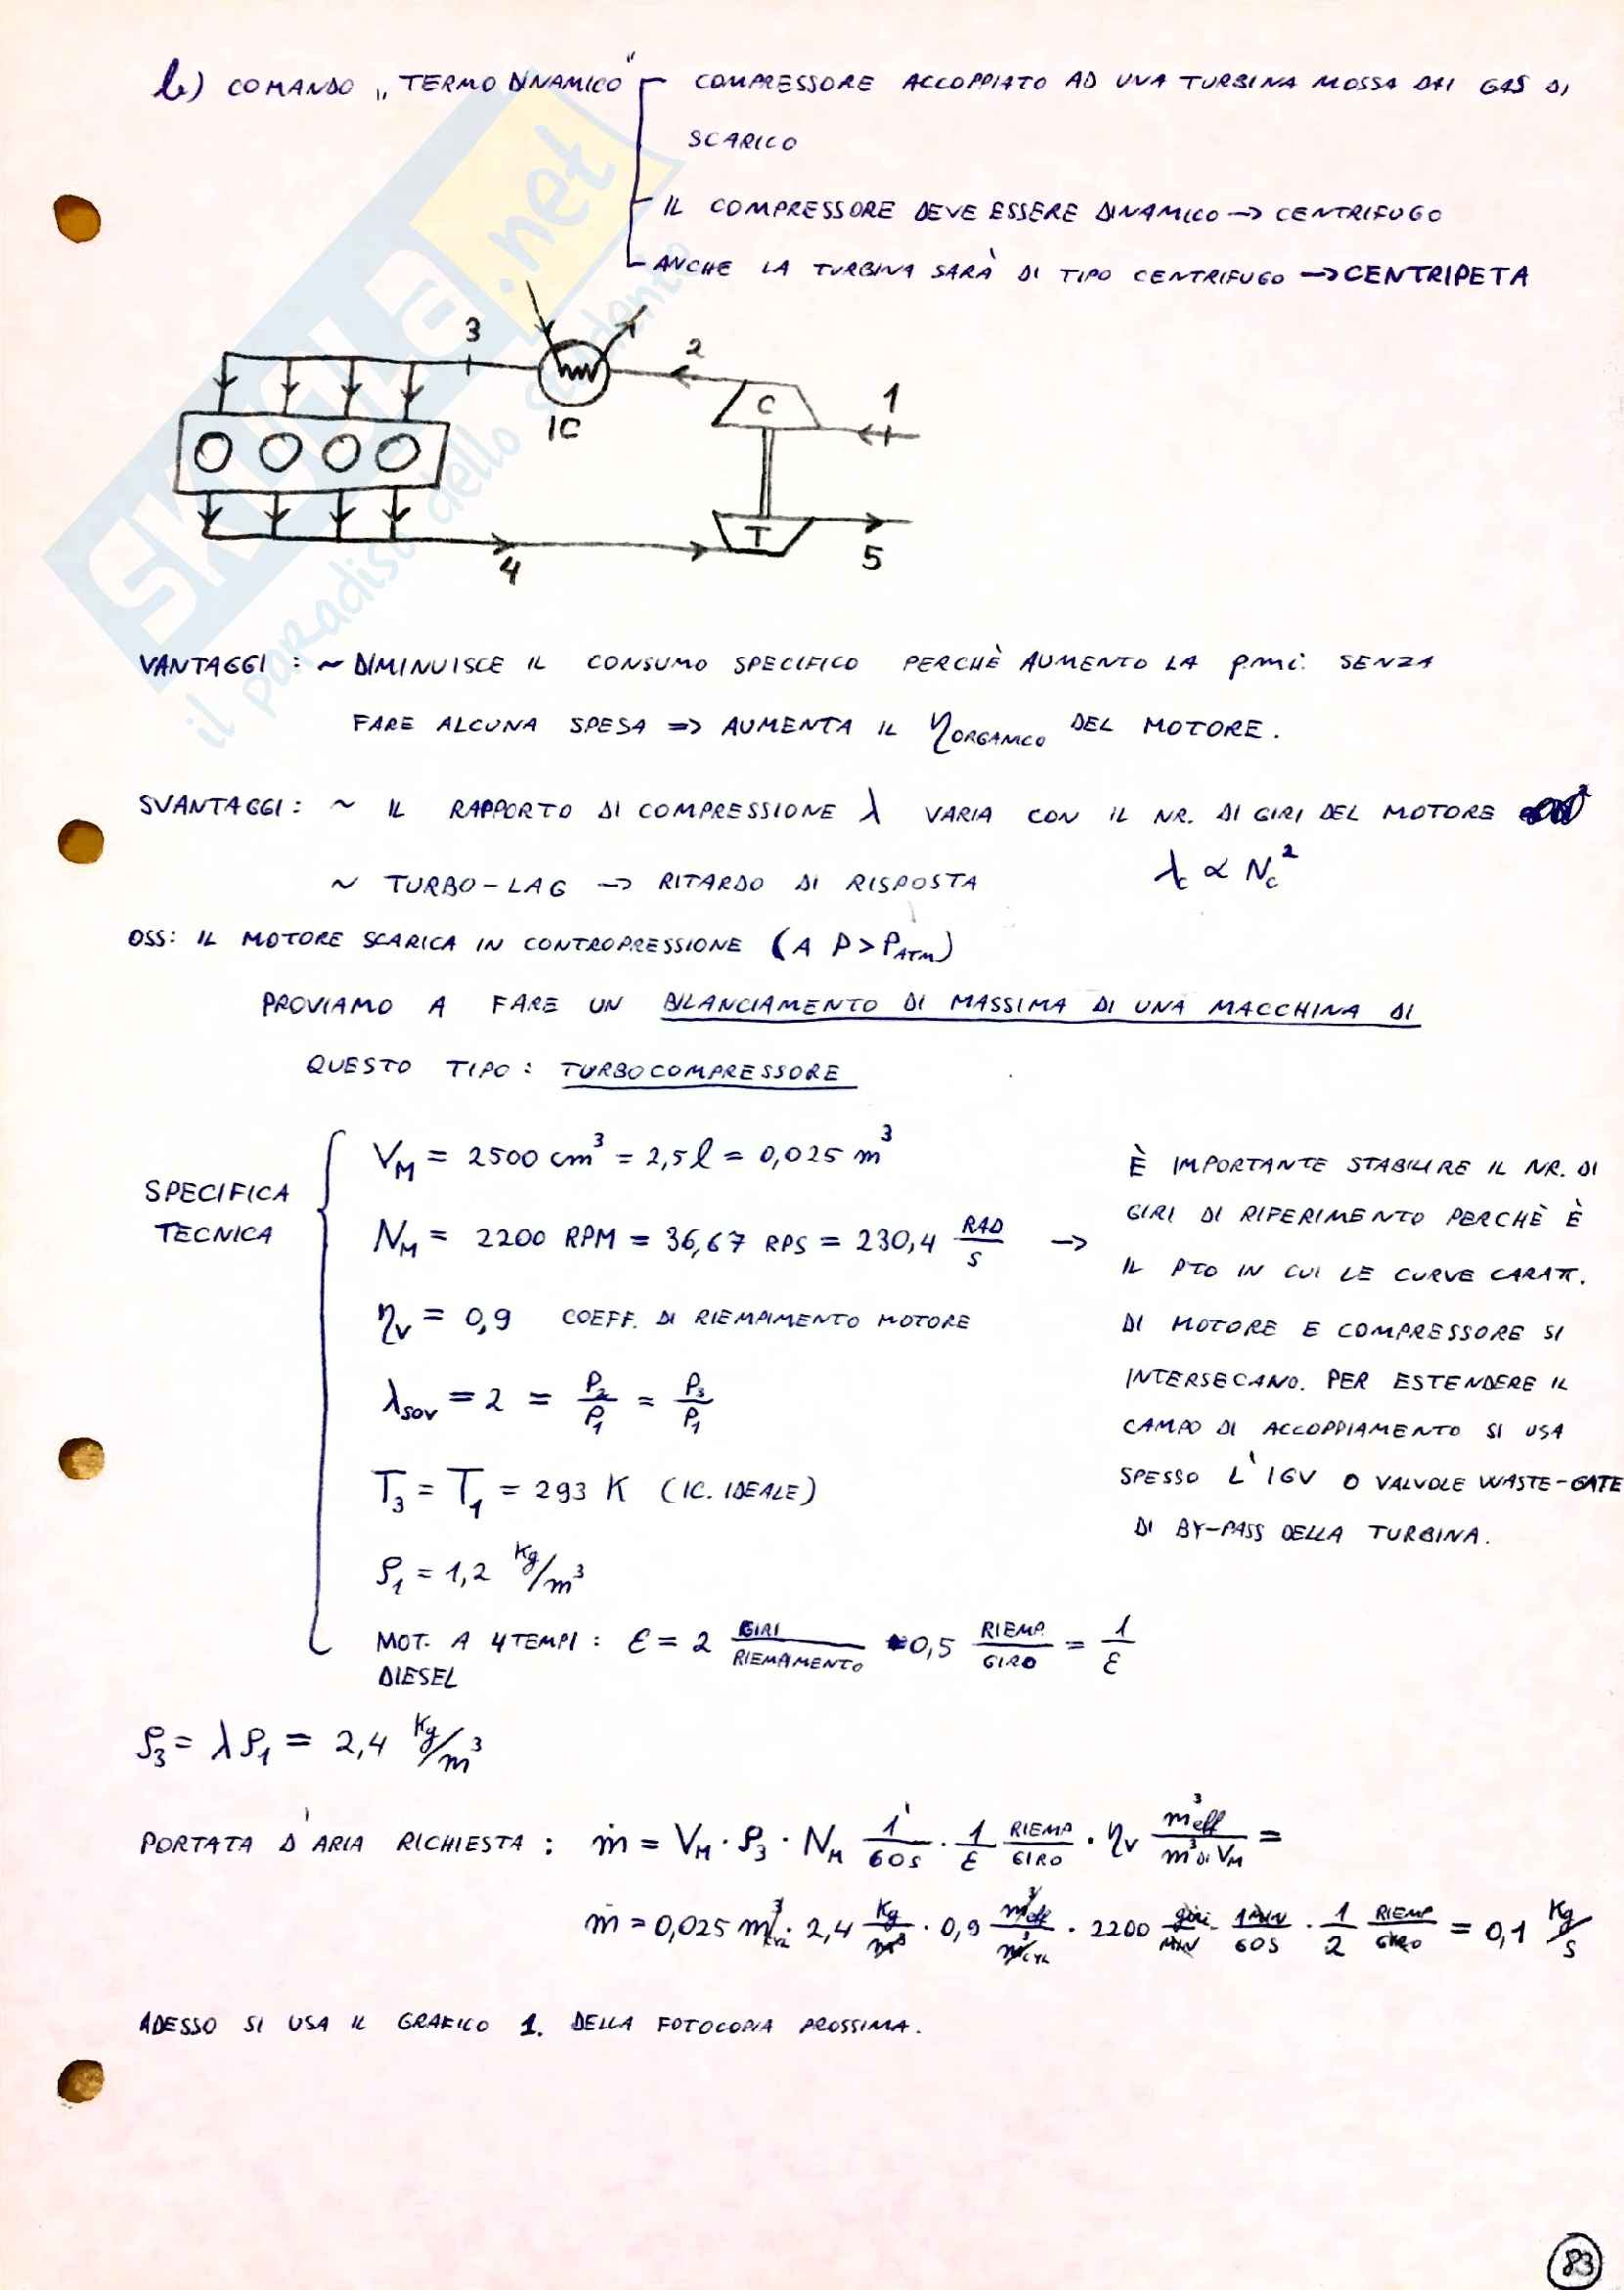 b) COMANDO „TERMODINAMICO" COMPRESSORE ACCOPPIATO AD UNA TURBINA MOSSA DAI GAS DI
SCARICO
IL COMPRESSORE DEVE ESSERE DINAMICO → CENTRIFUGO
ANCHE LA TURBINA SARÀ DI TIPO CENTRIFUGO → CENTRIPETA
3
2
C
1
IC
T
4
5
SKUOLA.net
il paradiso dello studente
VANTAGGI : ~ DIMINUISCE IL CONSUMO SPECIFICO PERCHÈ AUMENTO LA p.m.i. SENZA
FARE ALCUNA SPESA => AUMENTA IL η ORGANICO DEL MOTORE.
SVANTAGGI: ~ IL RAPPORTO DI COMPRESSIONE λ VARIA CON IL NR. DI GIRI DEL MOTORE
λc ∝ Nc²
~ TURBO-LAG → RITARDO DI RISPOSTA
OSS: IL MOTORE SCARICA IN CONTROPRESSIONE (A P > P_ATM)
PROVIAMO A FARE UN BILANCIAMENTO DI MASSIMA DI UNA MACCHINA DI
QUESTO TIPO: TURBOCOMPRESSORE
SPECIFICA
TECNICA
V_M = 2500 cm³ = 2,5 l = 0,025 m³
N_M = 2200 RPM = 36,67 RPS = 230,4 RAD/S →
η_V = 0,9 COEFF. DI RIEMPIMENTO MOTORE
λ_SOV = 2 = P₂/P₁ = P₃/P₁
T₃ = T₁ = 293 K (IC. IDEALE)
ρ₁ = 1,2 Kg/m³
MOT. A 4 TEMPI : ε = 2 GIRI/RIEMPIMENTO 0,5 RIEMP./GIRO = 1/ε
DIESEL
È IMPORTANTE STABILIRE IL NR. DI
GIRI DI RIFERIMENTO PERCHÈ È
IL PTO IN CUI LE CURVE CARATT.
DI MOTORE E COMPRESSORE SI
INTERSECANO. PER ESTENDERE IL
CAMPO DI ACCOPPIAMENTO SI USA
SPESSO L'IGV O VALVOLE WASTE-GATE
DI BY-PASS DELLA TURBINA.
ρ₃ = λρ₁ = 2,4 Kg/m³
PORTATA D'ARIA RICHIESTA : ṁ = V_M · ρ₃ · N_M 1'/60s · 1/ε RIEMP/GIRO · η_V m³eff/m³ DI V_M =
ṁ = 0,025 m³ · 2,4 Kg/m³ · 0,9 m³eff/m³CYL · 2200 giri/MIN · 1MIN/60S · 1/2 RIEMP/GIRO = 0,1 Kg/s
ADESSO SI USA IL GRAFICO 1. DELLA FOTOCOPIA PROSSIMA.
83